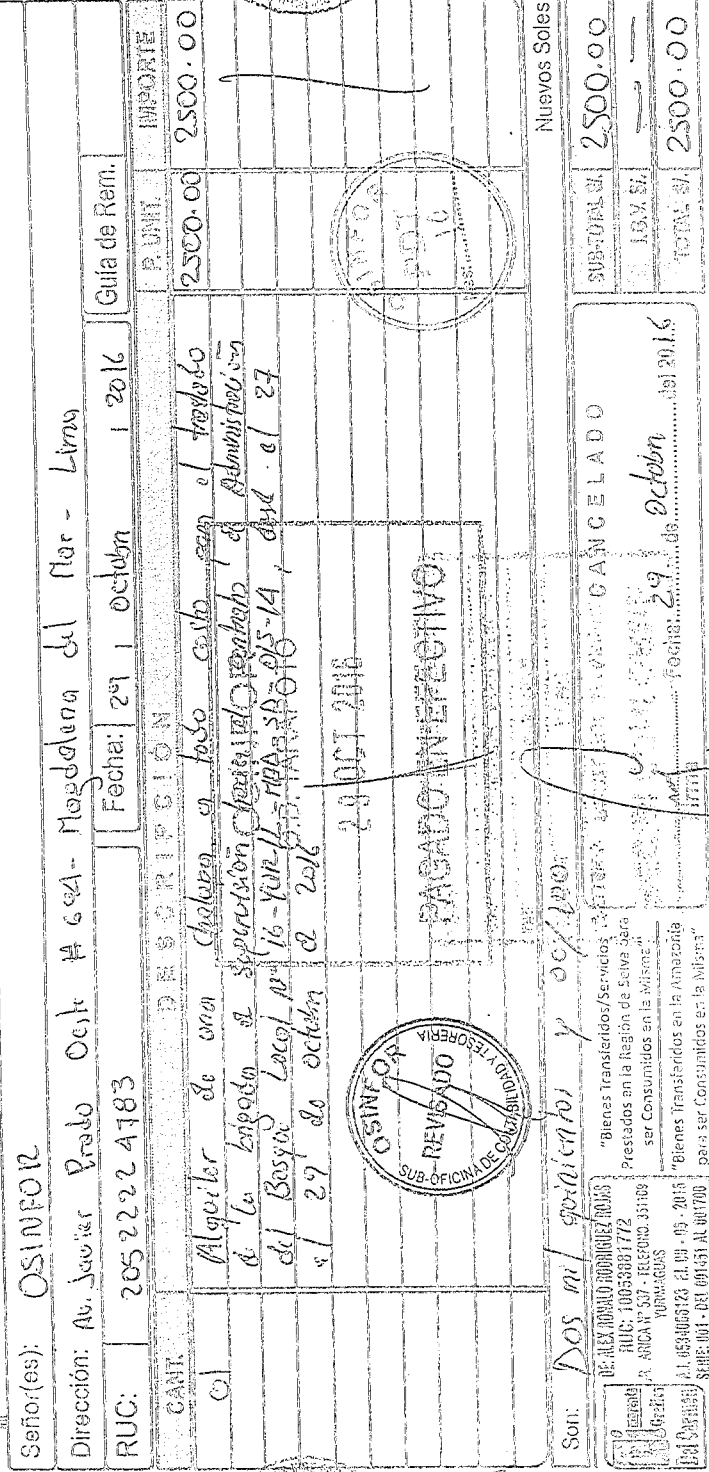 Señor(es): OSINFOR
Dirección: Av. Javier Prado Oeste # 694 - Magdalena del Mar - Lima
RUC: 20522224783 Fecha: 29 / octubre / 2016 Guía de Rem.
CANT. DESCRIPCIÓN P. UNIT. IMPORTE
01 Alquiler de una Chalupa a todo costo para el traslado 2500.00 2500.00
de la brigada de supervisión al Contrato de Administración
del Bosque Local Nº 16-YUR-/L-MAD-SD-015-14, desde el 27
al 29 de octubre de 2016
O.D. TARAPOTO
29 OCT 2016
PAGADO EN EFECTIVO
OSINFOR
REVISADO
SUB-OFICINA DE CONTABILIDAD Y TESORERIA
OSINFOR
PDT
10
Mes:
Son: Dos mil quinientos y 00/100 Nuevos Soles
DE: ALEX RONALD RODRIGUEZ ROJAS
RUC: 10053881772
JR. ARICA Nº 537 - TELEFONO. 351169
YURIMAGUAS
A.I. 0534066123 F.I. 09 - 05 - 2015
SERIE: 001 - DEL 001451 AL 001700
Imprenta
Grafica
Del Carmen
"Bienes Transferidos/Servicios
Prestados en la Región de Selva para
ser Consumidos en la Misma"
"Bienes Transferidos en la Amazonía
para ser Consumidos en la Misma"
CANCELADO
Fecha: 29 de Octubre del 2016
Firma
SUB-TOTAL S/. 2500.00
I.G.V. S/. — —
TOTAL S/. 2500.00